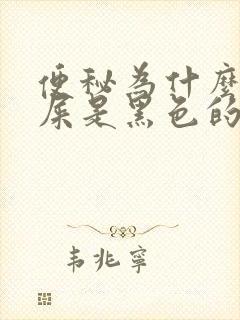 便秘為什麼
屎是黑色的
韦兆寧